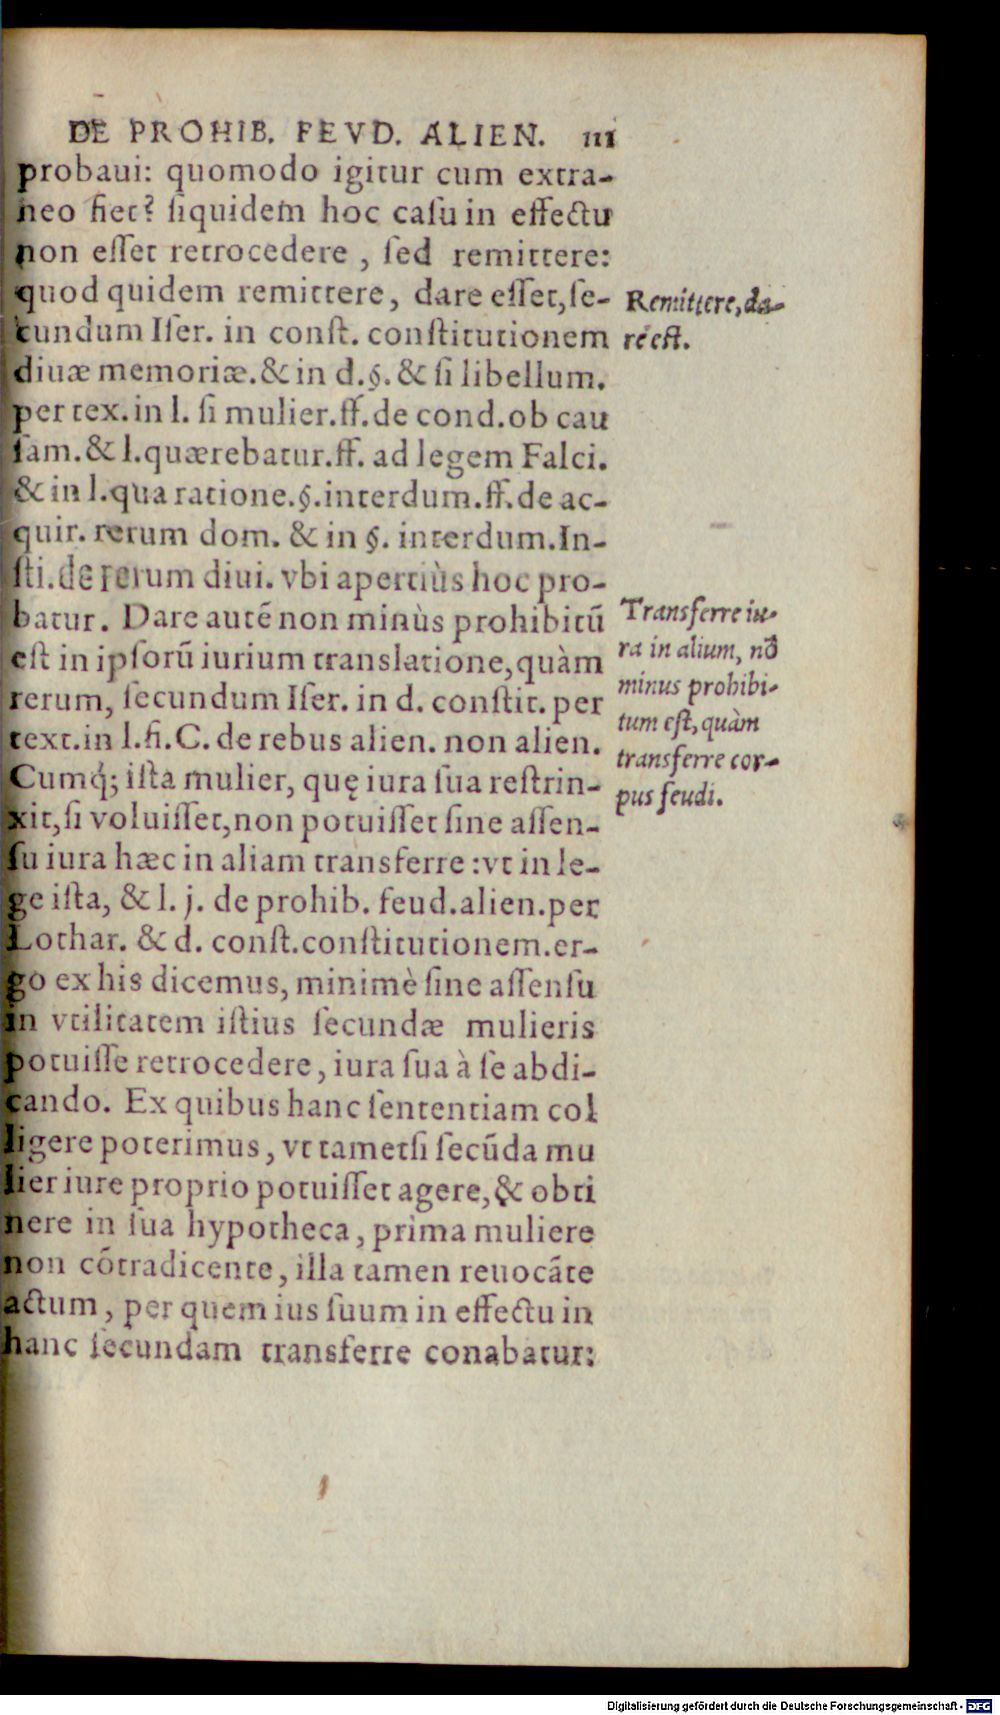 DE PROHIB. FEVD. ALIEN. 111
probaui: quomodo igitur cum extra-
neo fiet? ſiquidem hoc caſu in effectu
non eſſet retrocedere, ſed remittere:
quod quidem remittere, dare eſſet, ſe-
cundum Iſer. in conſt. conſtitutionem
diuæ memoriæ. & in d. §. & ſi libellum.
per tex. in l. ſi mulier. ff. de cond. ob cau
ſam. & l. quærebatur. ff. ad legem Falci.
& in l. qua ratione. §. interdum. ff. de ac-
quir. rerum dom. & in §. interdum. In-
ſti. de rerum diui. vbi apertiùs hoc pro-
batur. Dare autē non minùs prohibitū
eſt in ipſorū iurium translatione, quàm
rerum, ſecundum Iſer. in d. conſtit. per
text. in l. fi. C. de rebus alien. non alien.
Cumq́; iſta mulier, quę iura ſua reſtrin-
xit, ſi voluiſſet, non potuiſſet ſine aſſen-
ſu iura hæc in aliam transferre: vt in le-
ge iſta, & l. j. de prohib. feud. alien. per
Lothar. & d. conſt. conſtitutionem. er-
go ex his dicemus, minimè ſine aſſenſu
in vtilitatem iſtius ſecundæ mulieris
potuiſſe retrocedere, iura ſua à ſe abdi-
cando. Ex quibus hanc ſententiam col
ligere poterimus, vt tametſi ſecūda mu
lier iure proprio potuiſſet agere, & obti
nere in ſua hypotheca, prima muliere
non cōtradicente, illa tamen reuocāte
actum, per quem ius ſuum in effectu in
hanc ſecundam transferre conabatur:
Remittere, da-
re eſt.
Transferre iu-
ra in alium, nō
minus prohibi-
tum eſt, quàm
transferre cor-
pus feudi.
Digitalisierung gefördert durch die Deutsche Forschungsgemeinschaft - DFG